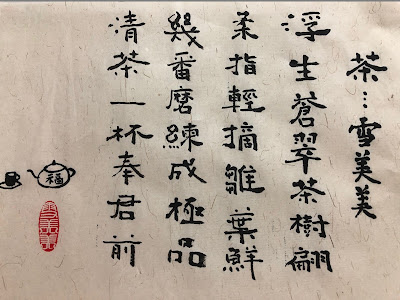 茶…雪美美
浮生蒼翠茶樹翩
柔指輕摘雛葉鮮
幾番磨練成極品
清茶一杯奉君前
福
雪美美